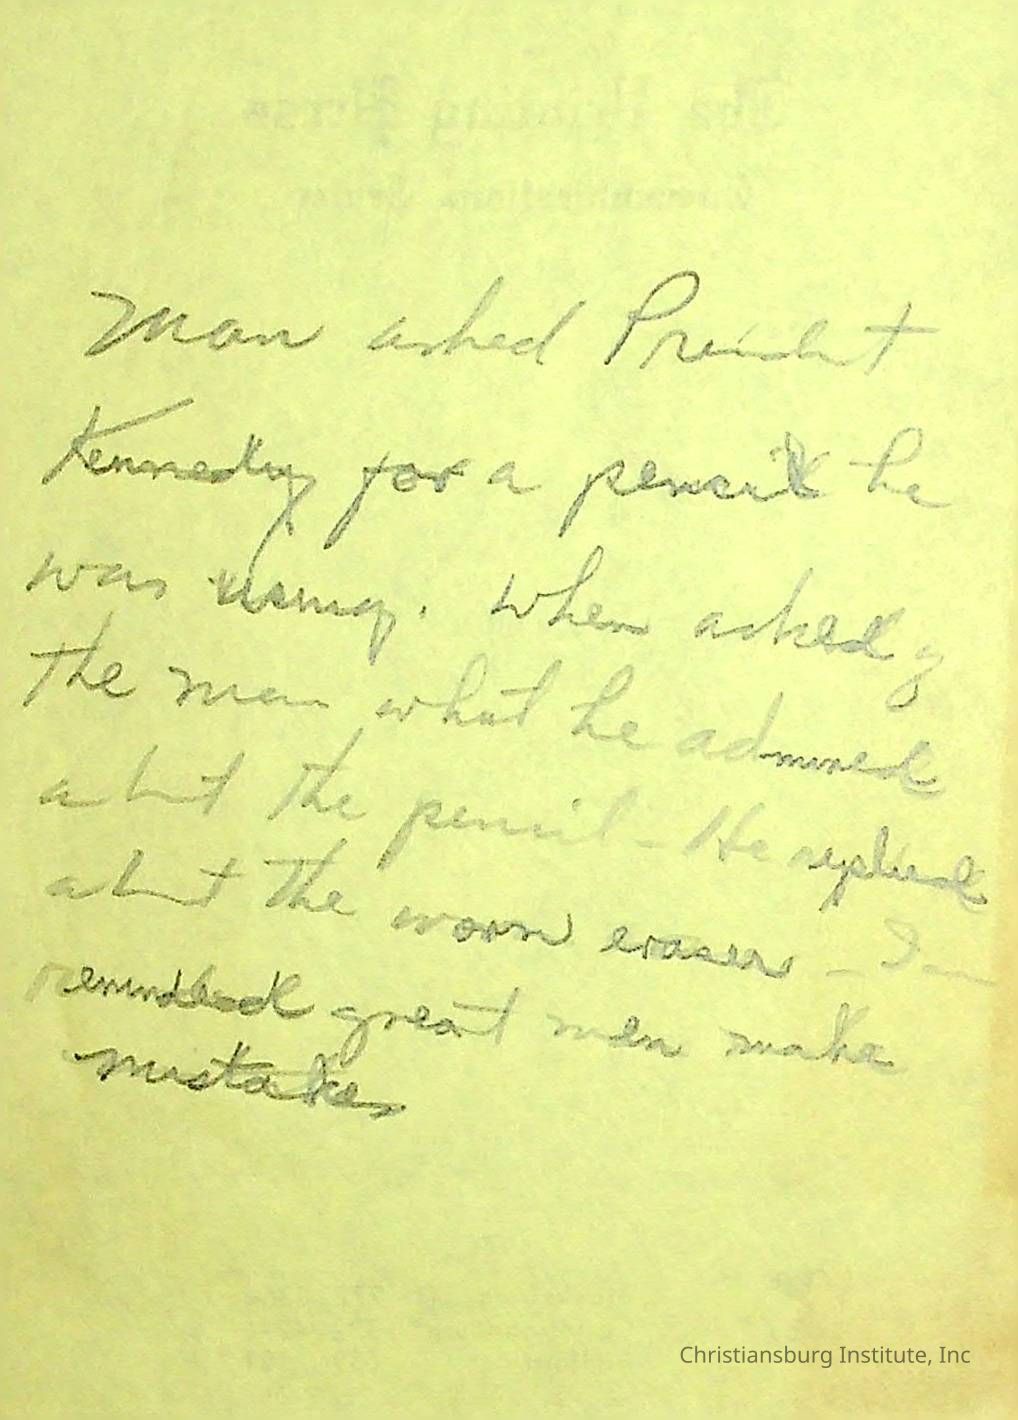 Man asked President
Kennedy for a pencil he
was using. When asked
the man what he admired
about the pencil - He replied
about the worn eraser - I
reminded great men make
mistakes
Christiansburg Institute, Inc